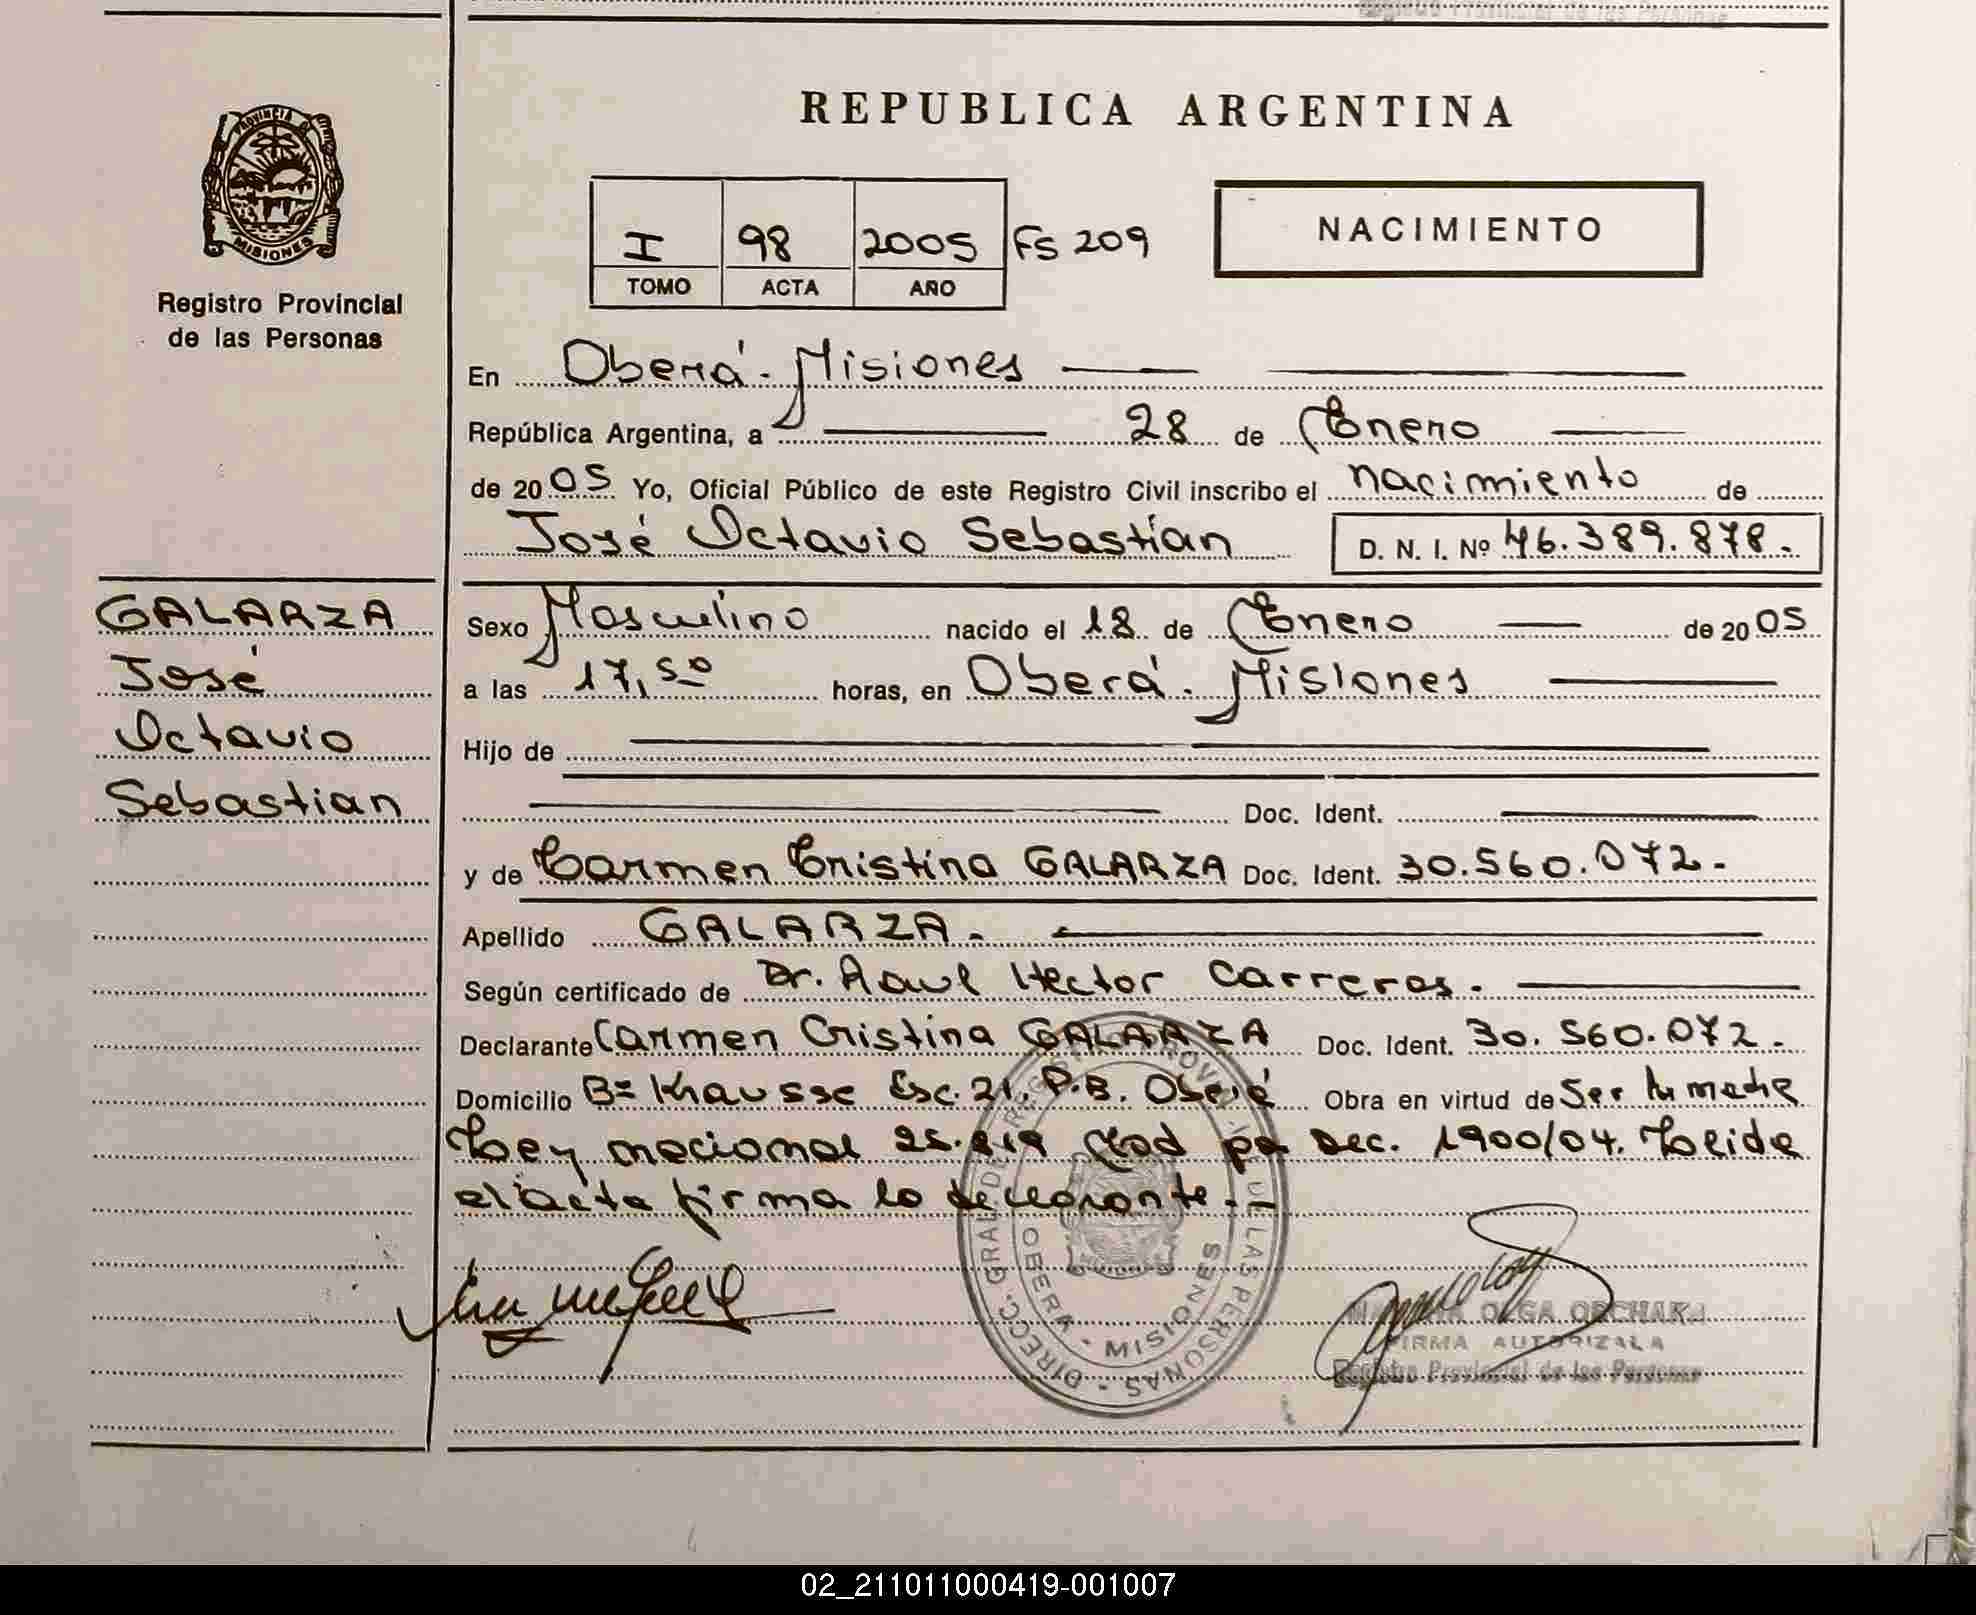 Registro Provincial de las Personas
PROVINCIA DE
MISIONES
Registro Provincial
de las Personas
REPUBLICA ARGENTINA
I 98 2005 Fs 209
TOMO ACTA AÑO
NACIMIENTO
En Oberá - Misiones
República Argentina, a 28 de Enero
de 2005 Yo, Oficial Público de este Registro Civil inscribo el nacimiento de
José Octavio Sebastián D. N. I. Nº 46.389.878.
GALARZA
José
Octavio
Sebastian
Sexo Masculino nacido el 18 de Enero de 2005
a las 17,50 horas, en Oberá. Misiones
Hijo de
Doc. Ident.
y de Carmen Cristina GALARZA Doc. Ident. 30.560.072.
Apellido GALARZA.
Según certificado de Dr. Raul Hector Carreras.
Declarante Carmen Cristina GALARZA Doc. Ident. 30.560.072.
Domicilio Bº Krausse Esc. 21. P.B. Oberá Obra en virtud de Ser su madre
Ley nacional 25.819 Mod por Dec. 1900/04. Leida
el acta firma la declarante.-
DIRECC. GRAL. DE REGISTRO PROVINCIAL DE LAS PERSONAS
OBERA - MISIONES
OLGA
FIRMA AUTORIZADA
Registro Provincial de las Personas
02_211011000419-001007